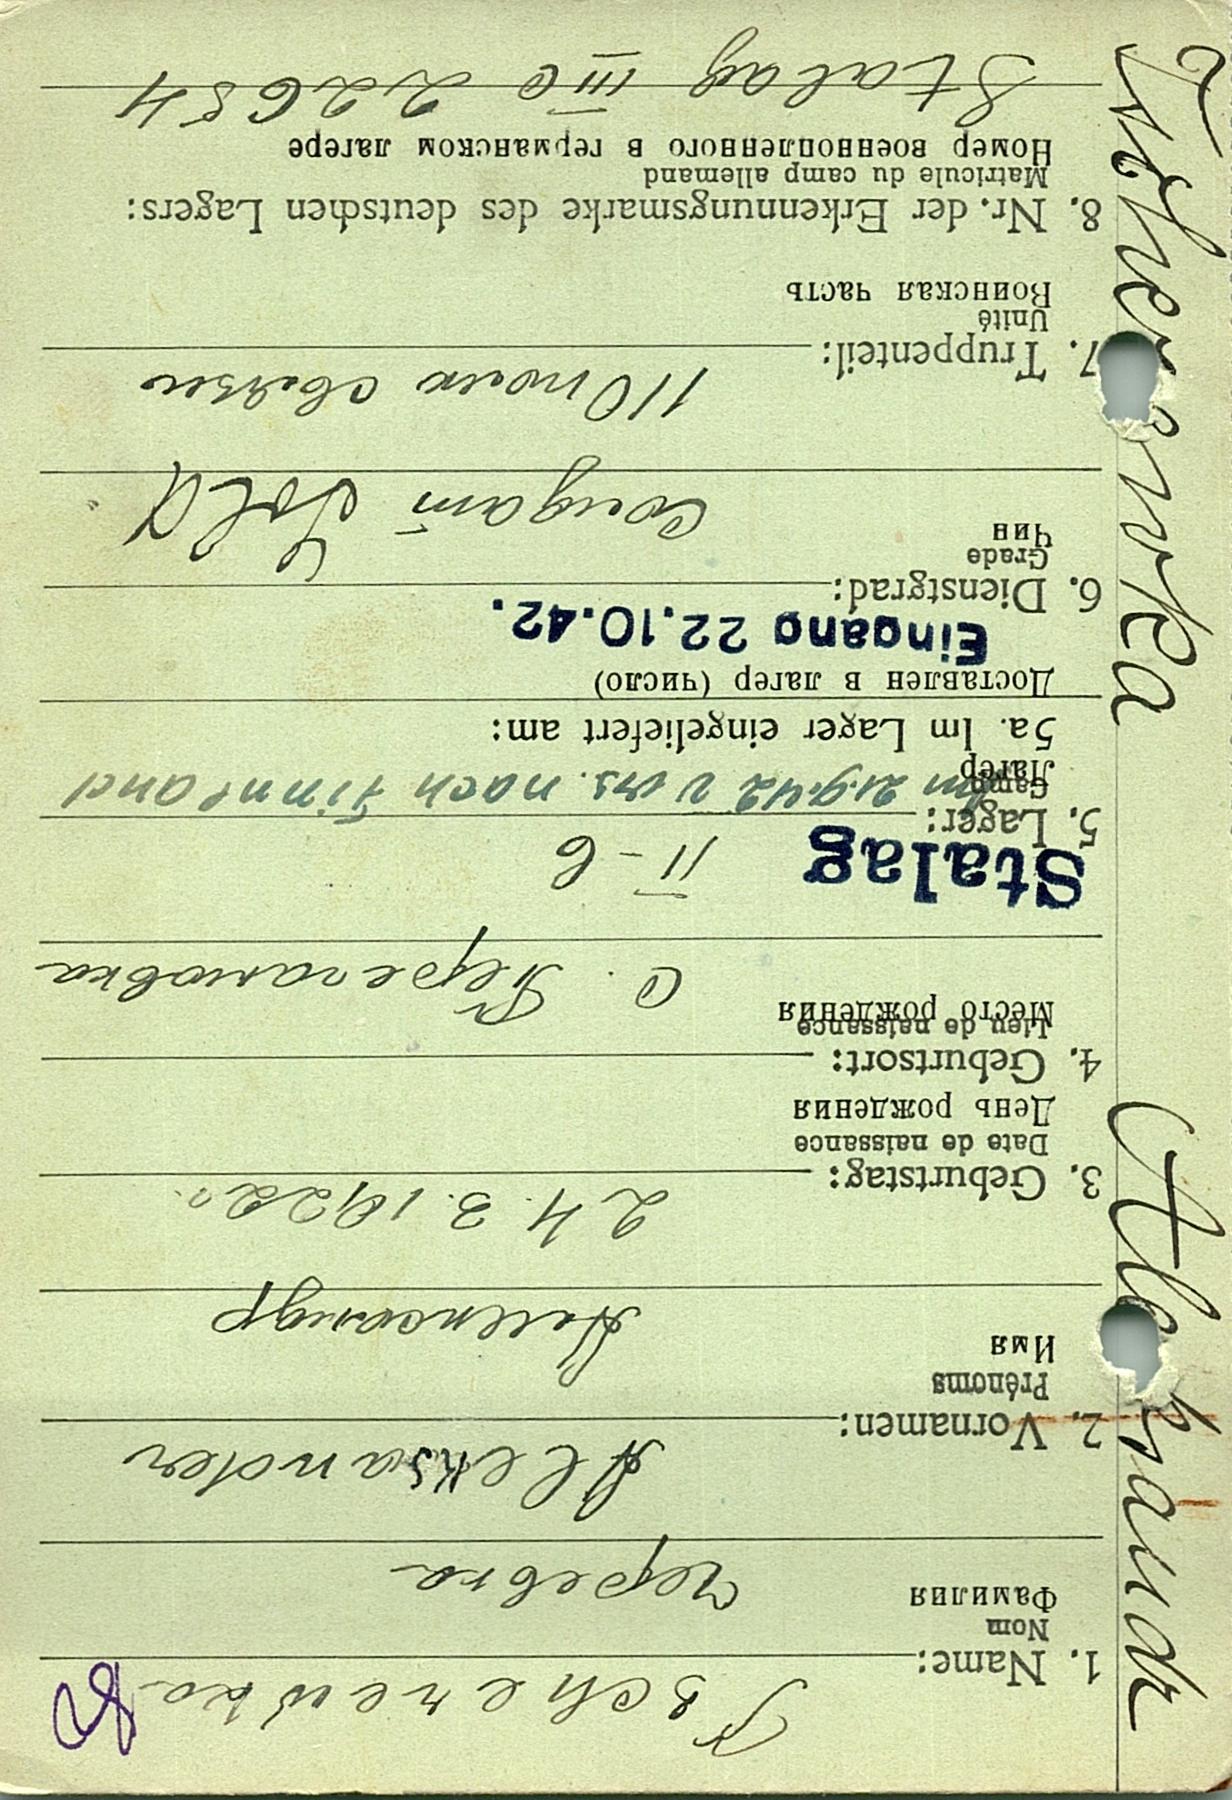 Tscherewka Alexandr
1. Name: Tscherewka
Nom
Фамилия
Черевка
2. Vornamen: Aleksander
Prénoms
Имя
Александр
3. Geburtstag: 24.3.1922
Date de naissance
День рождения
4. Geburtsort:
Lieu de naissance
Место рождения
С. Перегановка
Stalag II-б
5. Lager:
Camp
Лагер
Am 21.9.42 vers. nach Finnland
5a. Im Lager eingeliefert am:
Доставлен в лагер (число)
Eingang 22.10.42.
6. Dienstgrad:
Grade
Чин
солдат Sold
7. Truppenteil: 110 полк связи
Unité
Воинская часть
8. Nr. der Erkennungsmarke des deutschen Lagers:
Matricule du camp allemand
Номер военнопленного в германском лагере
Stalag III C 22654